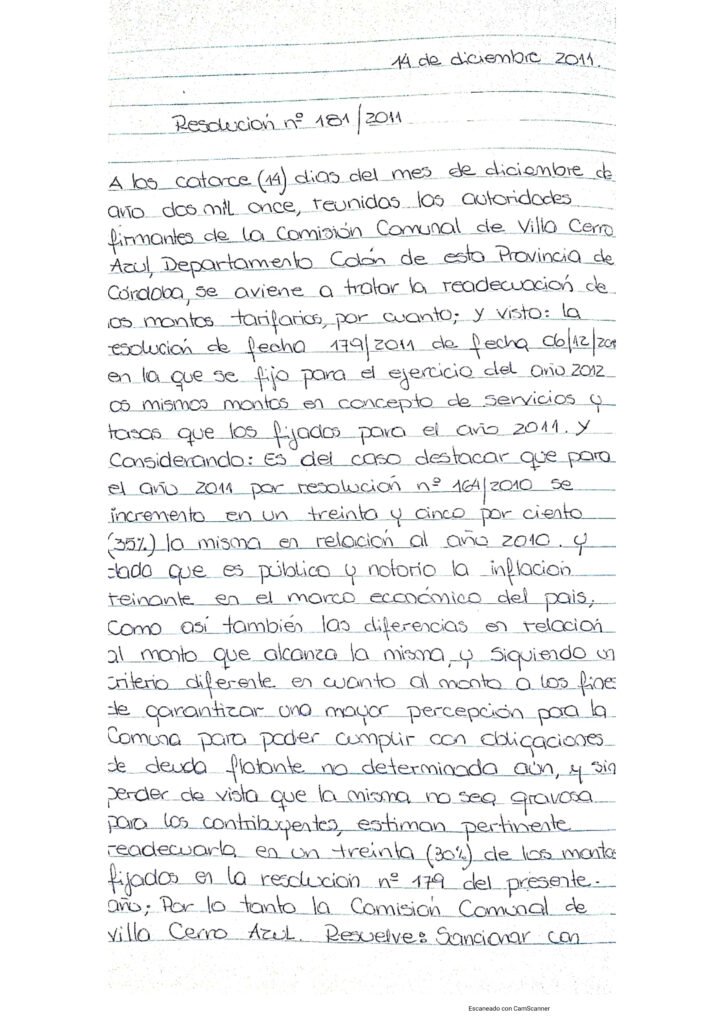 14 de diciembre 2011.
Resolución nº 181/2011
A los catorce (14) dias del mes de diciembre de
año dos mil once, reunidas las autoridades
firmantes de la Comisión Comunal de Villa Cerro
Azul, Departamento Colón de esta Provincia de
Córdoba, se aviene a tratar la readecuación de
os montos tarifarios, por cuanto; y visto: la
esolución de fecha 179/2011 de fecha 06/12/201
en la que se fijo para el ejercicio del año 2012
os mismos montos en concepto de servicios y
tasas que los fijados para el año 2011. Y
Considerando: Es del caso destacar que para
el año 2011 por resolución nº 164/2010 se
incremento en un treinta y cinco por ciento
(35%) la misma en relación al año 2010. y
dado que es público y notorio la inflacion
reinante en el marco económico del pais,
Como así también las diferencias en relacion
al monto que alcanza la misma, y siguiendo un
criterio diferente en cuanto al monto a los fine
de garantizar una mayor percepción para la
Comuna para poder cumplir con obligaciones
de deuda flotante no determinada aún, y sin
perder de vista que la misma no sea gravosa
para los contribuyentes, estiman pertinente
readecuarla en un treinta (30%) de los monto
fijados en la resolucion nº 179 del presente.
año; Por lo tanto la Comisión Comunal de
Villa Cerro Azul. Resuelve: Sancionar con
Escaneado con CamScanner